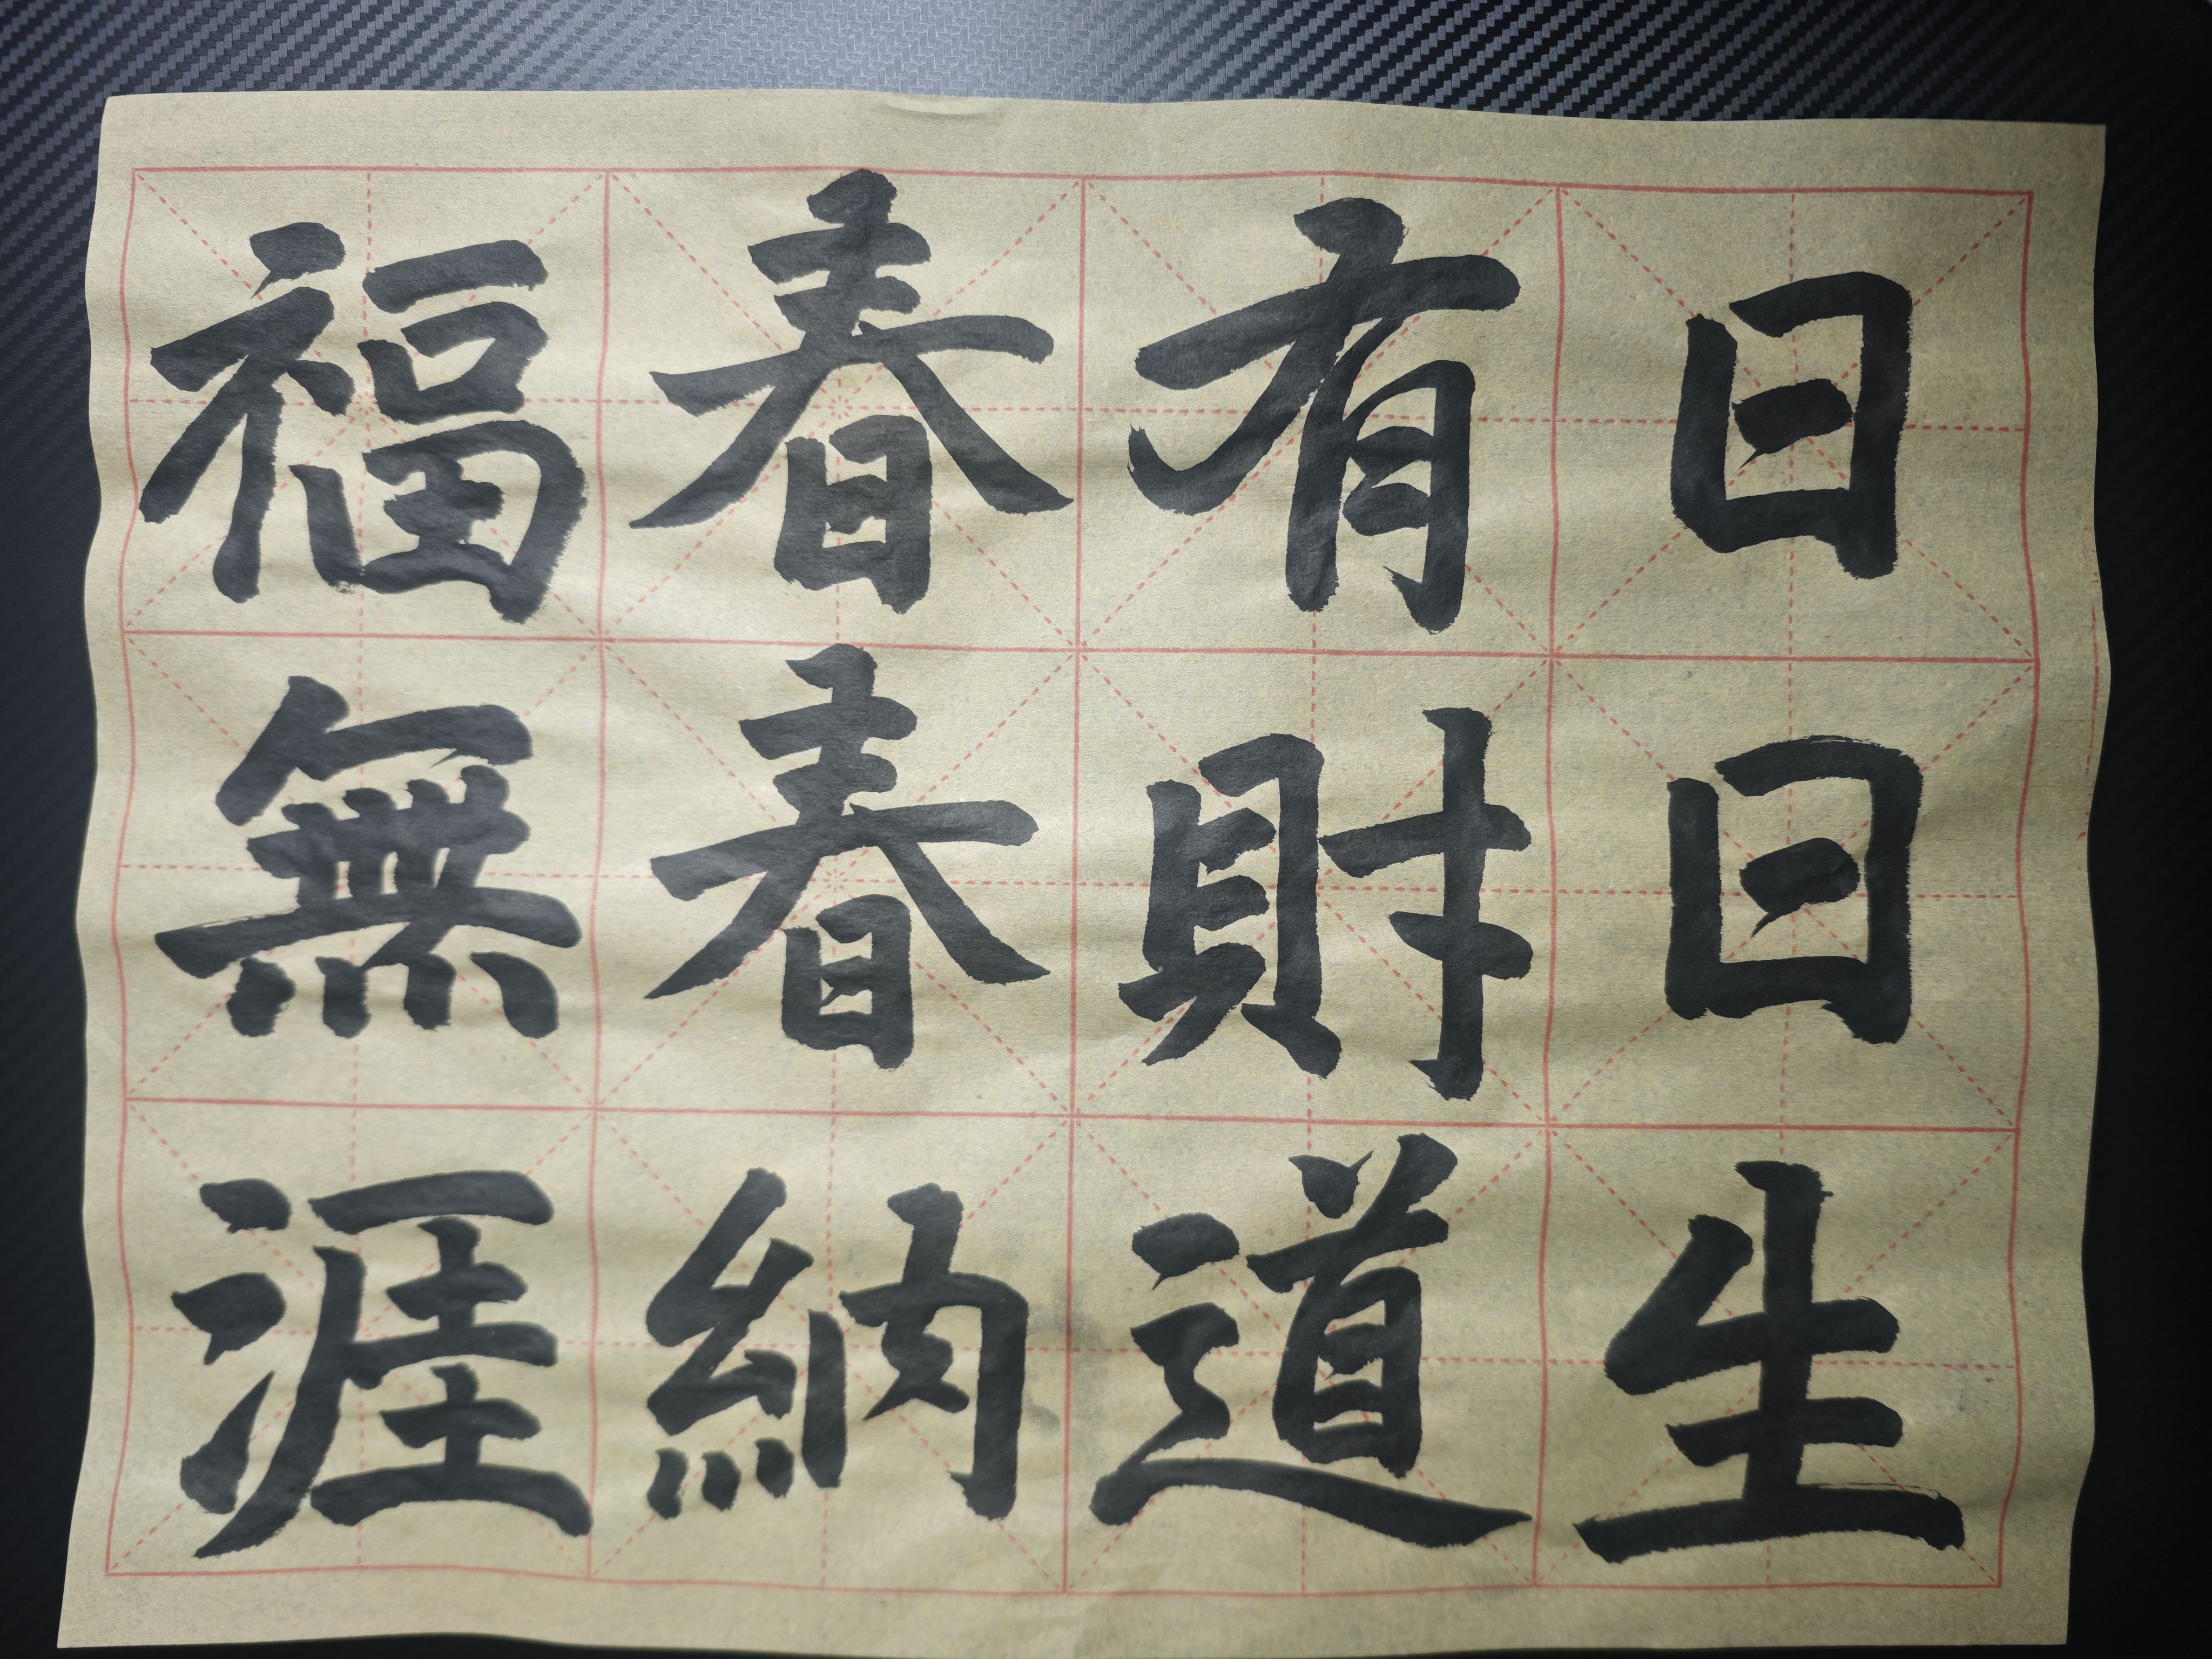 日日生
有財道
春春納
福無涯